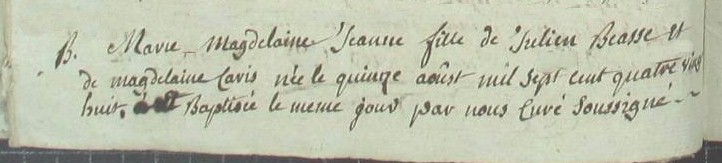 B. Marie Magdelaine Jeanne fille de Julien Beasse et
de magdelaine Cavis née le quinze aoust mil sept cent quatre vingt
huit, a été Baptisée le meme jour par nous Curé Soussigné